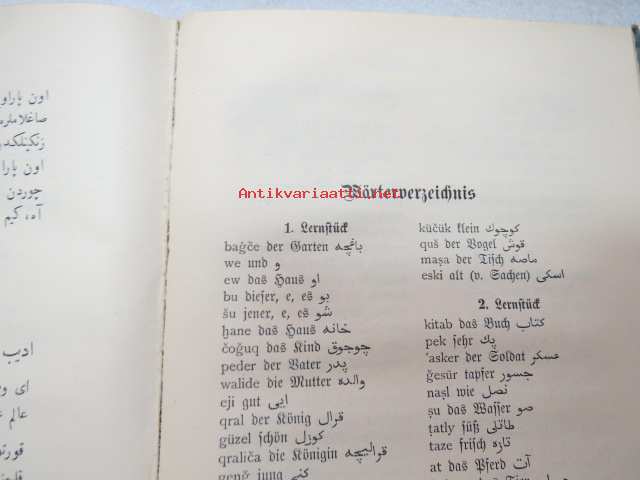 اون پارا
صاغلاملر
زنكينلكد
اون پارا
چوردن
آه، كيم
اديب
اى و
عالم ع
Antikvariaatti.net
Wörterverzeichnis
1. Lernstück
bağče der Garten باغچه
we und و
ew das Haus او
bu dieser, e, es بو
šu jener, e, es شو
ḫane das Haus خانه
čoǧuq das Kind چوجوق
peder der Vater پدر
walide die Mutter والده
eji gut ايى
qral der König قرال
güzel schön كوزل
qraliča die Königin قراليچه
genǧ jung كنج
küčük klein كوچوك
quš der Vogel قوش
maṣa der Tisch ماصه
eski alt (v. Sachen) اسكى
2. Lernstück
kitab das Buch كتاب
pek sehr پك
'asker der Soldat عسكر
ǧesür tapfer جسور
naṣl wie نصل
ṣu das Wasser صو
ṭatly süß طاتلى
taze frisch تازه
at das Pferd آت